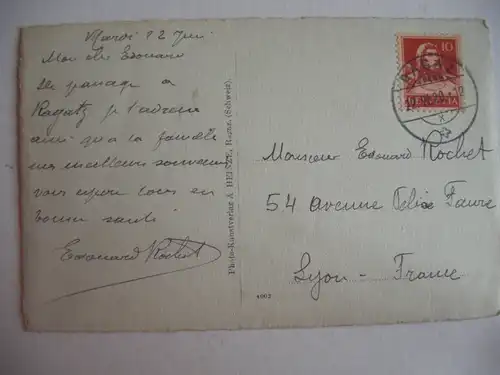 Mardi 12 Juin
Mon cher Edouard
De passage à
Ragatz je t'adresse
ainsi qu'à ta famille
mes meilleurs souvenirs
vous espère tous en
bonne santé
Edouard Rochet
Photo-Kunstverlag A. Ragaz. (Schweiz).
4062
10
HELVETIA
RAGAZ
Monsieur Edouard Rochet
54 avenue Félix Faure
Lyon - France